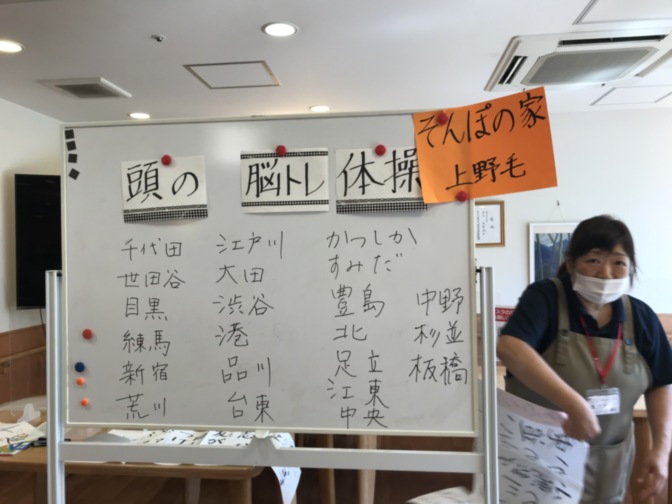 頭の 脳トレ 体操
そんぽの家
上野毛
千代田
世田谷
目黒
練馬
新宿
荒川
江戸川
大田
渋谷
港
品川
台東
かつしか
すみだ
豊島
北
足立
江東
中央
中野
杉並
板橋